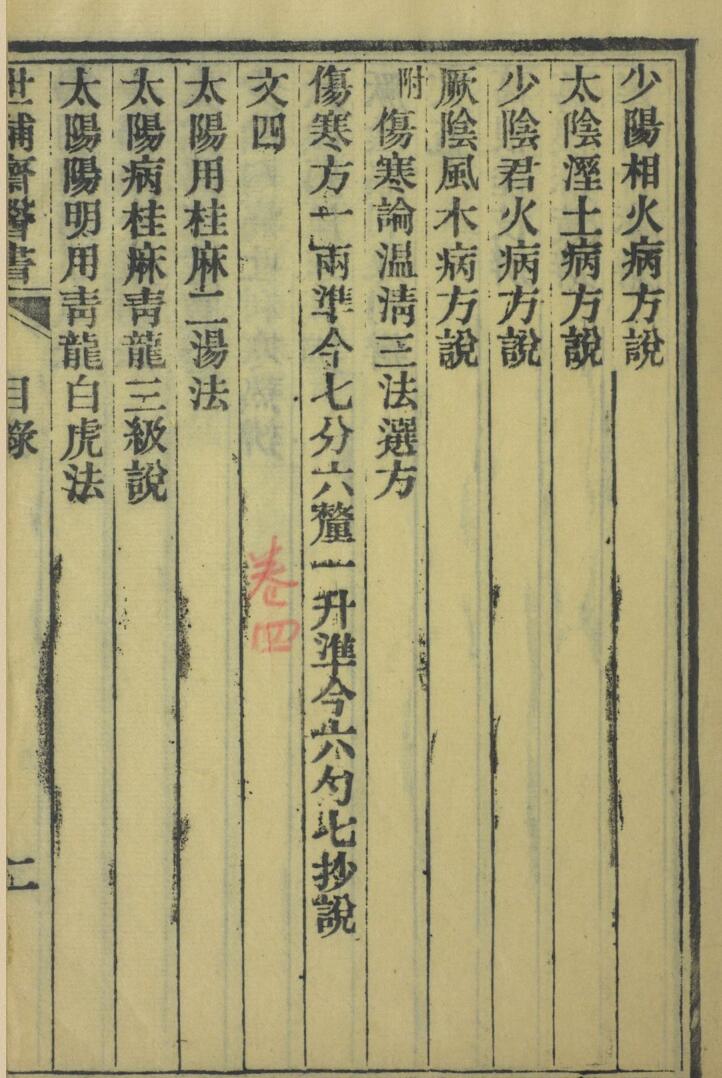 少陽相火病方說
太陰溼土病方說
少陰君火病方說
厥陰風木病方說
附傷寒論温清三法選方
傷寒方一兩準今七分六釐一升準今六勺七抄說
文四
卷四
太陽用桂麻二湯法
太陽病桂麻靑龍三級說
太陽陽明用靑龍白虎法
世補齋醫書
目錄
二